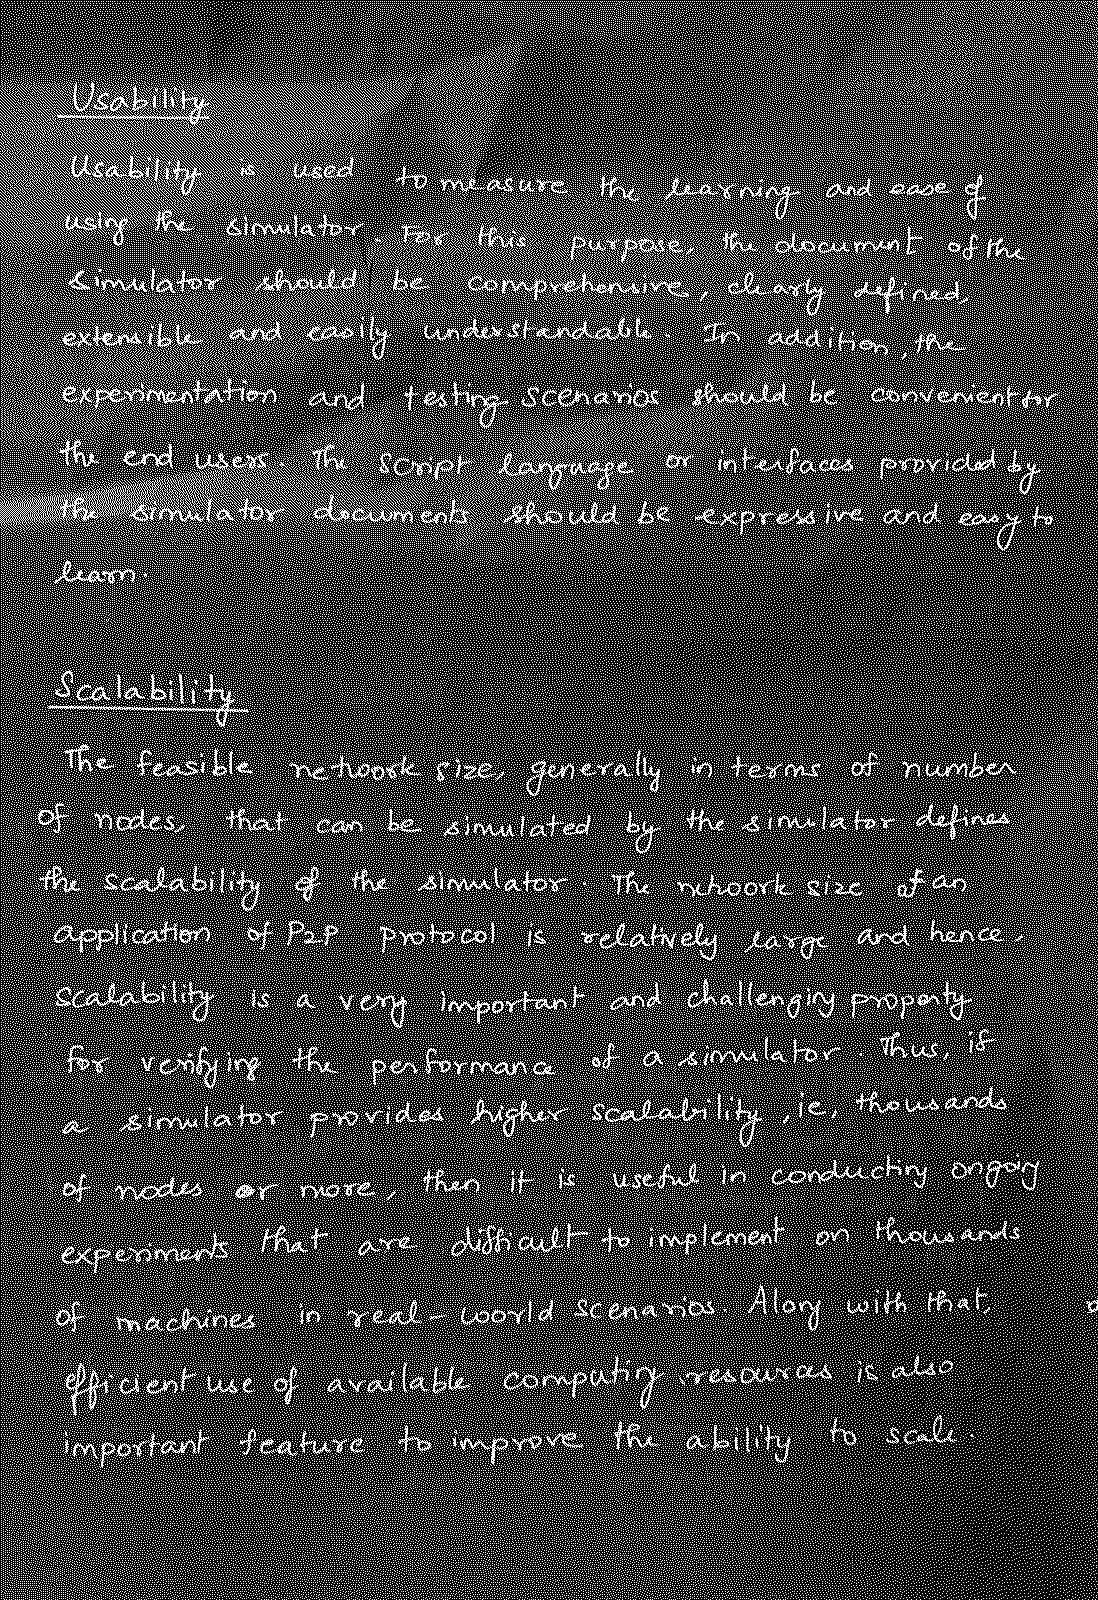 Usability
Usability is used to measure the learning and ease of
using the simulator. For this purpose, the document of the
simulator should be comprehensive, clearly defined,
extensible and easily understandable. In addition, the
experimentation and testing scenarios should be convenient for
the end users. The script language or interfaces provided by
the simulator documents should be expressive and easy to
learn.
Scalability
The feasible network size, generally in terms of number
of nodes, that can be simulated by the simulator defines
the scalability of the simulator. The network size of an
application of P2P protocol is relatively large and hence,
scalability is a very important and challenging property
for verifying the performance of a simulator. Thus, if
a simulator provides higher scalability, ie, thousands
of nodes or more, then it is useful in conducting ongoing
experiments that are difficult to implement on thousands
of machines in real-world scenarios. Along with that,
efficient use of available computing resources is also
important feature to improve the ability to scale